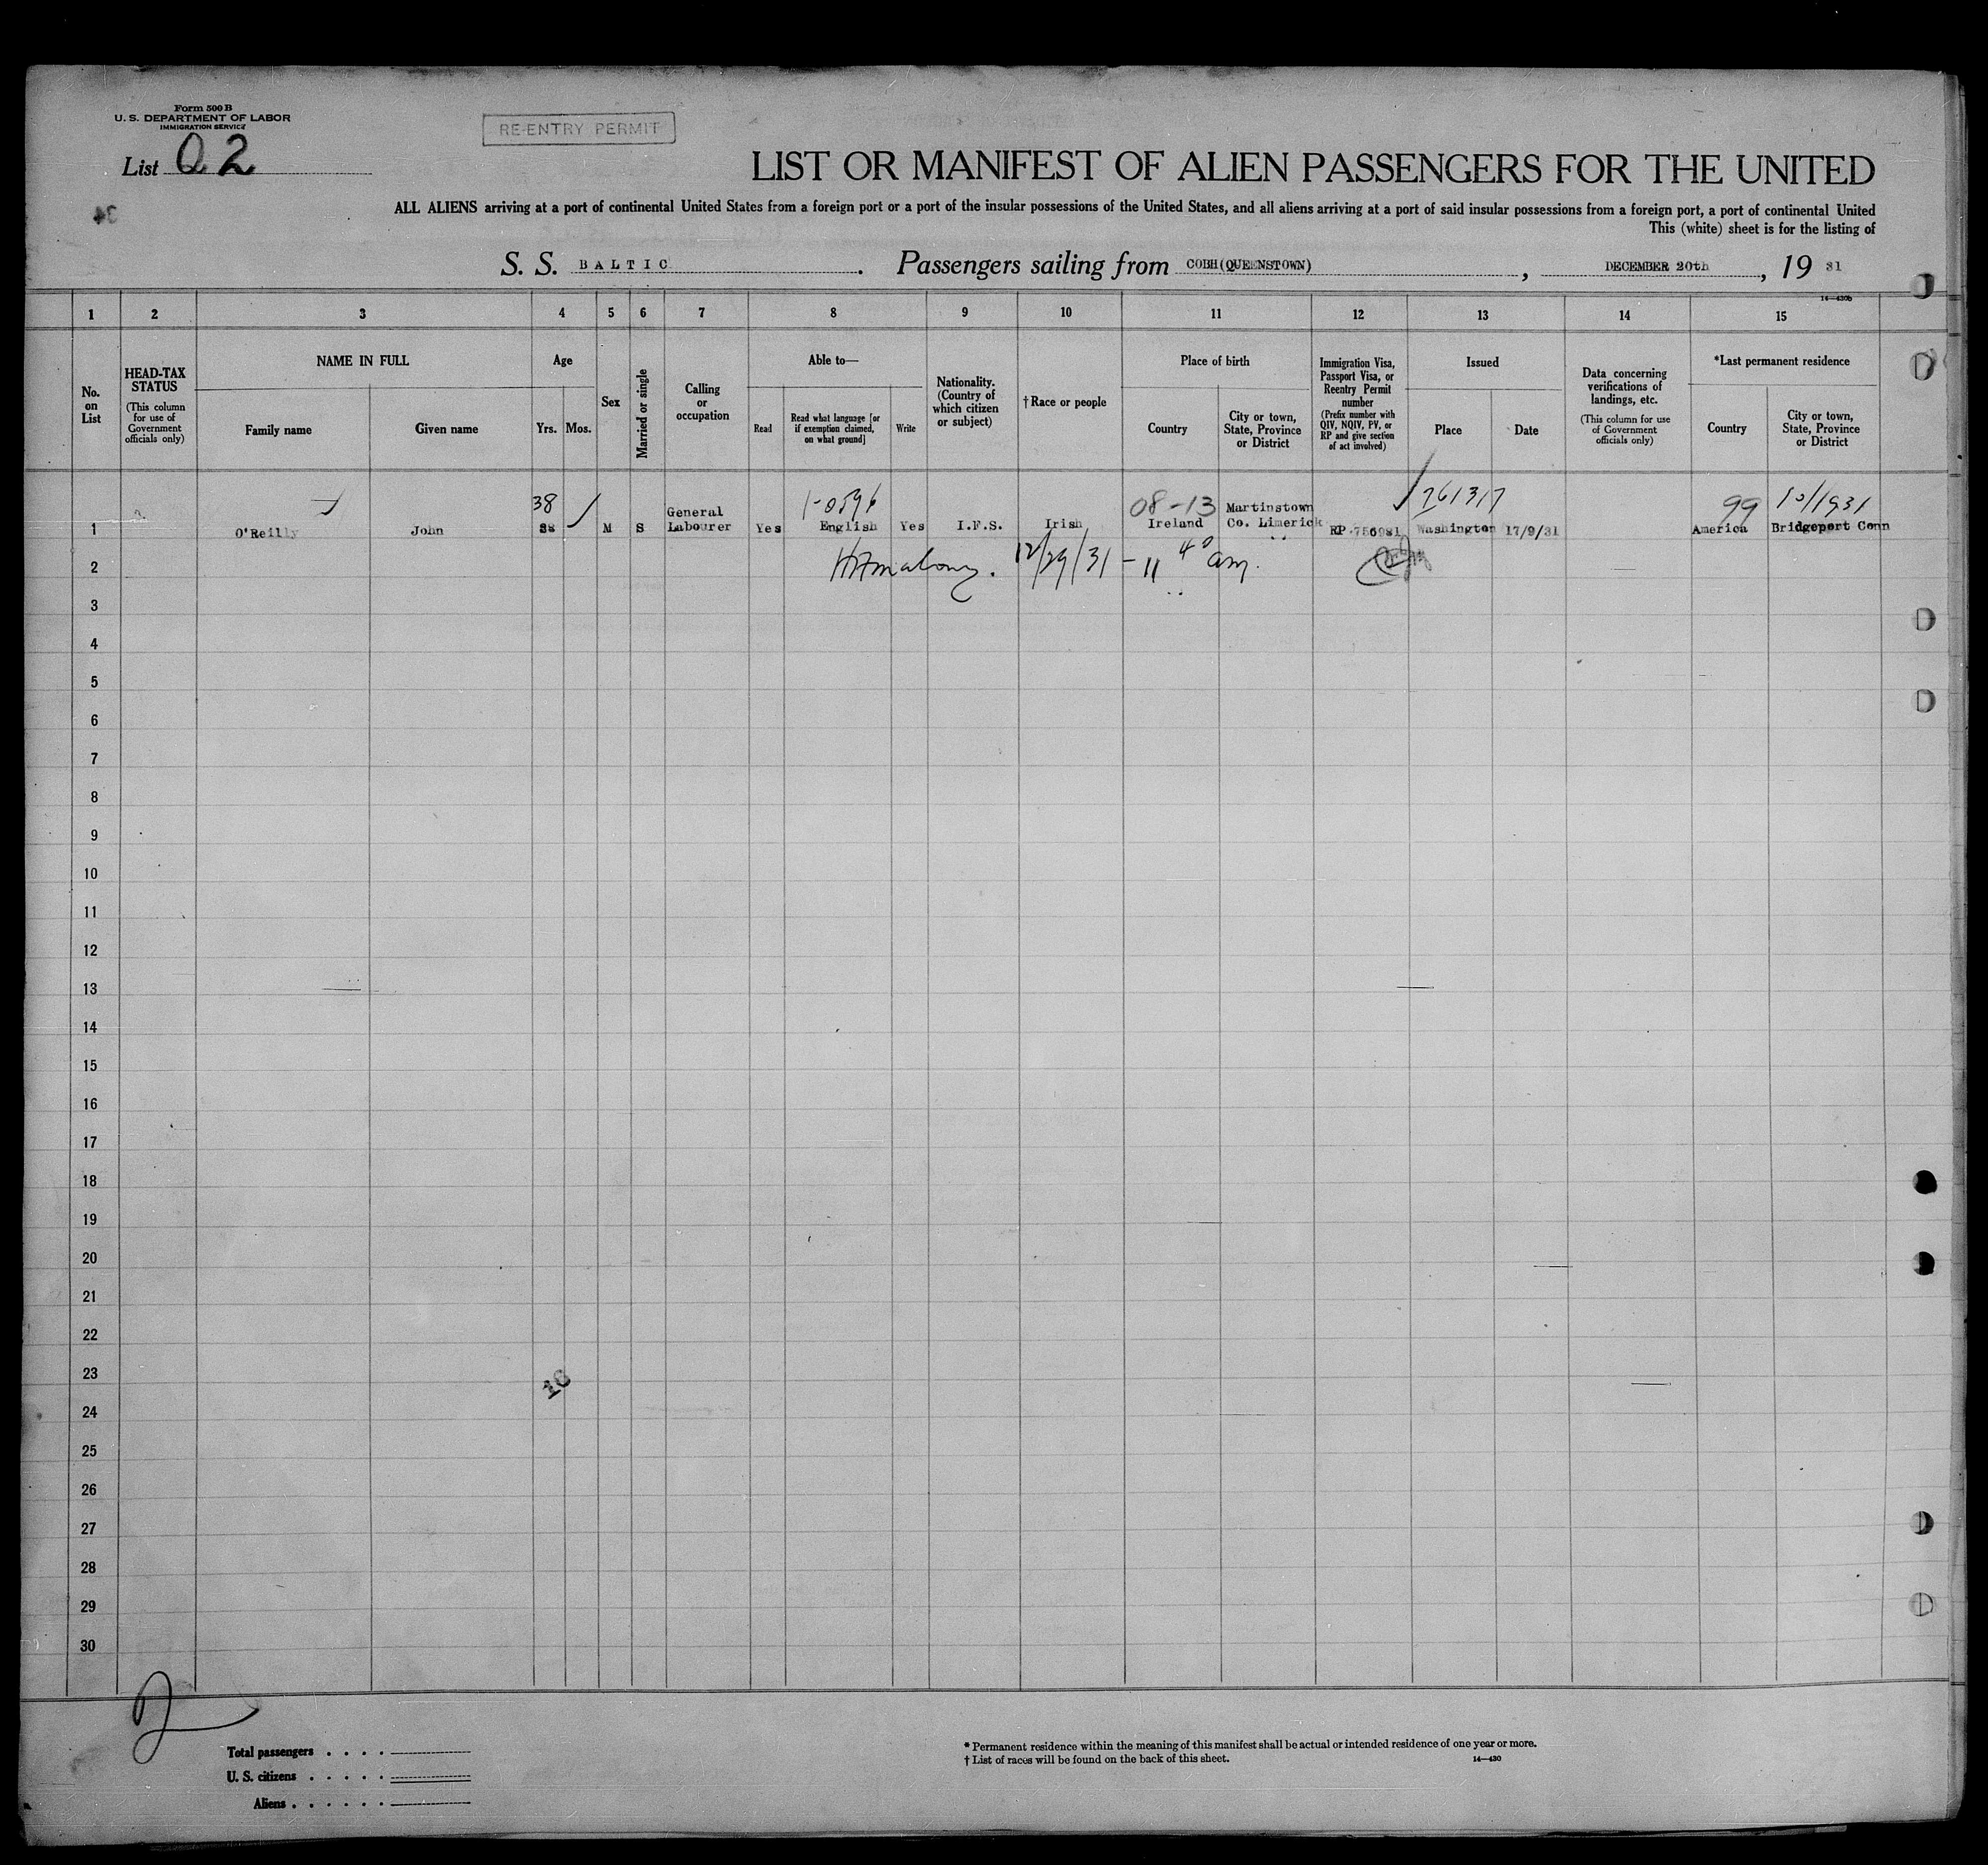 Form 500 B
U. S. DEPARTMENT OF LABOR
IMMIGRATION SERVICE
RE-ENTRY PERMIT
List 2
LIST OR MANIFEST OF ALIEN PASSENGERS FOR THE UNITED
ALL ALIENS arriving at a port of continental United States from a foreign port or a port of the insular possessions of the United States, and all aliens arriving at a port of said insular possessions from a foreign port, a port of continental United
This (white) sheet is for the listing of
S. S. BALTIC. Passengers sailing from COBH(QUEENSTOWN), DECEMBER 20th, 19 31
14—430b
1 2 3 4 5 6 7 8 9 10 11 12 13 14 15
No. on List
HEAD-TAX STATUS
(This column for use of Government officials only)
NAME IN FULL
Family name
Given name
Age
Yrs. Mos.
Sex
Married or single
Calling or occupation
Able to—
Read
Read what language [or if exemption claimed, on what ground]
Write
Nationality. (Country of which citizen or subject)
†Race or people
Place of birth
Country
City or town, State, Province or District
Immigration Visa, Passport Visa, or Reentry Permit number
(Prefix number with QIV, NQIV, PV, or RP and give section of act involved)
Issued
Place
Date
Data concerning verifications of landings, etc.
(This column for use of Government officials only)
*Last permanent residence
Country
City or town, State, Province or District
38 1-0596 08-13 761317 99 10/1931
1 O'Reilly John 38 M S General Labourer Yes English Yes I.F.S. Irish Ireland Martinstown Co. Limerick RP 756981 Washington 17/9/31 America Bridgeport Conn
2 12/29/31 - 11 40 am.
3
4
5
6
7
8
9
10
11
12
13
14
15
16
17
18
19
20
21
22
23
24
25
26
27
28
29
30
Total passengers . . . .
U. S. citizens . . . . .
Aliens . . . . . .
* Permanent residence within the meaning of this manifest shall be actual or intended residence of one year or more.
† List of races will be found on the back of this sheet. 14—430